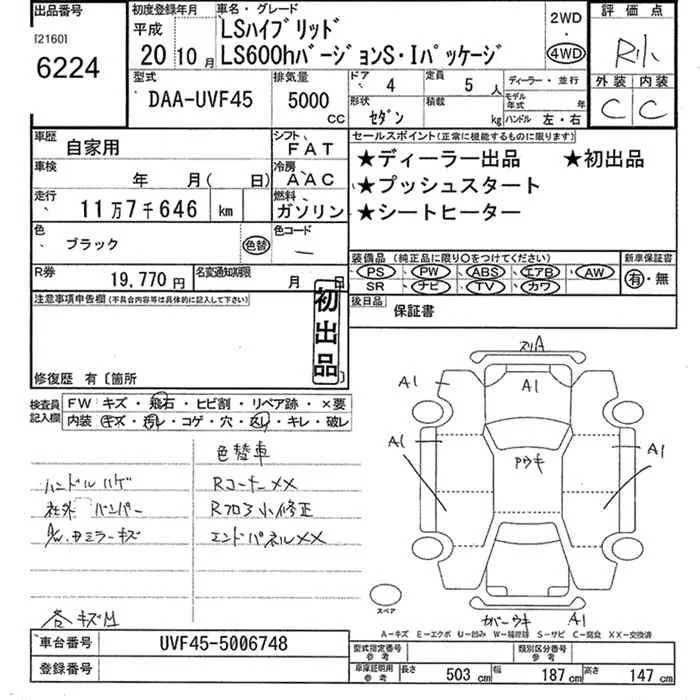 出品番号
[2160]
6224
初度登録年月
平成
20 10月
車名・グレード
LSハイブリッド
LS600hバージョンS・Iパッケージ
2WD
・
4WD
評価点
R小
外装 内装
C C
型式
DAA-UVF45
排気量
5000
CC
ドア
4
定員
5
人
形状
セダン
積載
kg
ディーラー・並行
モデル年式 年
ハンドル 左・右
車歴
自家用
シフト
FAT
車検
年 月( 日)
冷房
AAC
走行
11万7千646 km
燃料
ガソリン
色
ブラック
色替
色コード
R券
19,770円
名変通知期限
月 日
セールスポイント(正常に機能するものに限ります)
★ディーラー出品 ★初出品
★プッシュスタート
★シートヒーター
装備品 (純正品に限り○をつけてください)
PS・PW・ABS・エアB・AW
SR・ナビ・TV・カワ
新車保証書
有・無
後日品
保証書
注意事項申告欄(不具合内容等は具体的に記入して下さい)
初出品
修復歴 有〔箇所
検査員記入欄
FW キズ・飛石・ヒビ割・リペア跡・×要
内装 キズ・汚レ・コゲ・穴・返し・キレ・破レ
色替車
ハンドルハゲ RコーナーXX
社外 バンパー Rフロア小修正
A/W、ドミラーキズ エンドパネルXX
各キズM
スリA
A1
A1
A1
A1
A1
アウキ
カバーウキ A1
スペア
A-キズ E-エクボ U-凹み W-補修跡 S-サビ C-腐食 XX-交換済
車台番号
UVF45-5006748
登録番号
型式指定番号
参考
類別区分番号
参考
車庫証明用
参考
長さ 503 cm 幅 187 cm 高さ 147 cm